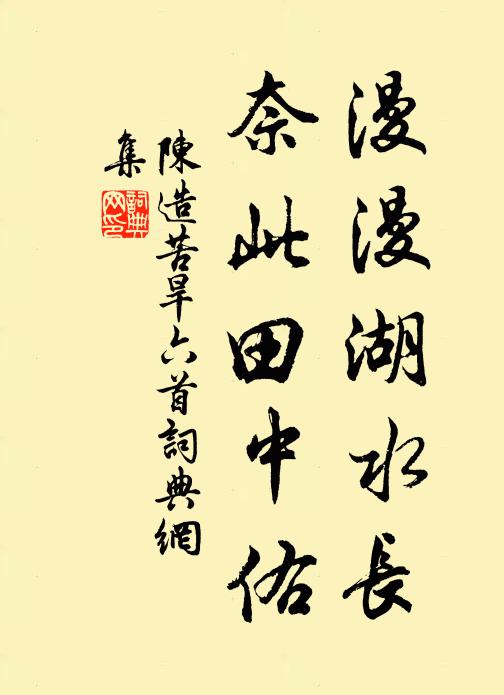 漫漫湖水長
奈此田中佑
陳造苦旱六首詞典網
集
詞典
网印